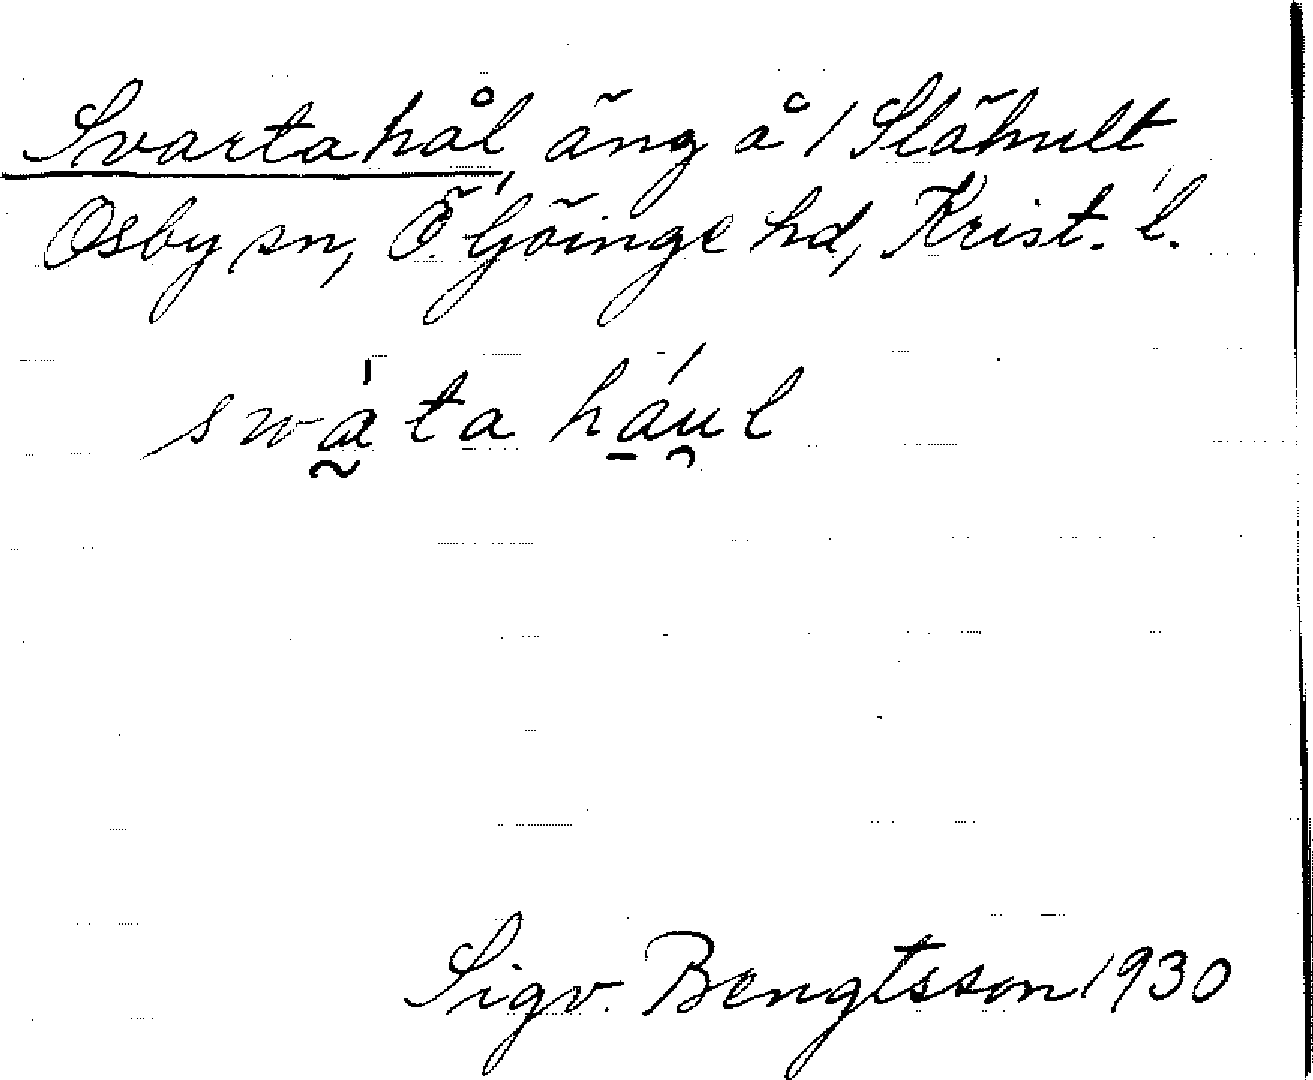 Svartahål, äng å 1 Slähult
Osby sn, Ö. Göinge hd, Krist. l.
swa̰̍ta há̱u̯l
Sigv. Bengtsson 1930